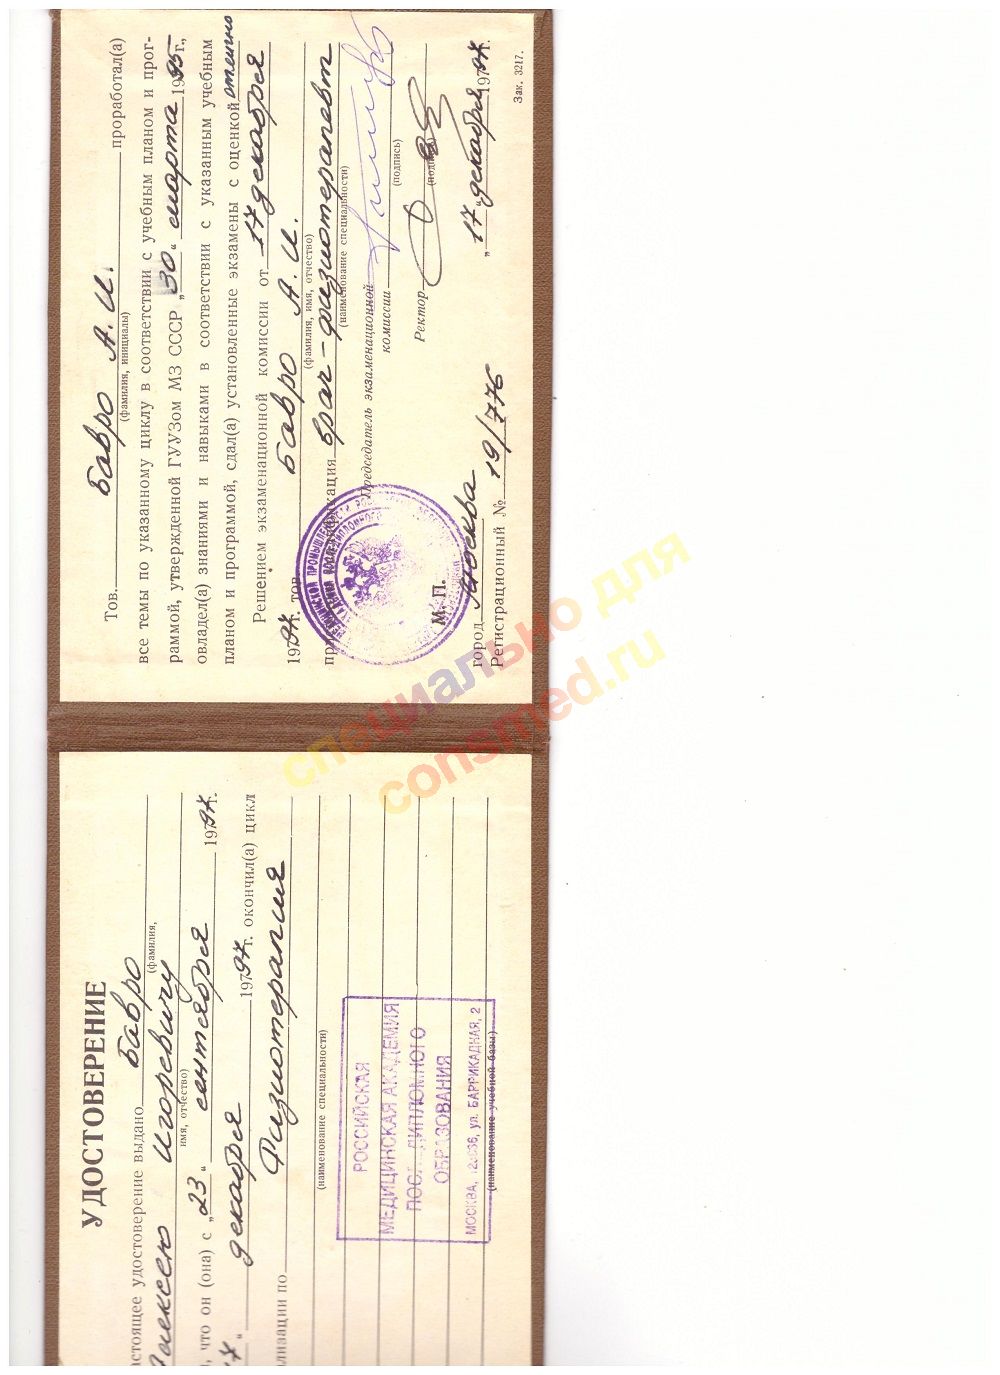 УДОСТОВЕРЕНИЕ
астоящее удостоверение выдано Бавро
(фамилия,
Алексею Игоревичу
имя, отчество)
, что он (она) с „23“ сентября 1994г.
17“ декабря 1994г. окончил(а) цикл
ализации по Физиотерапия
(наименование специальности)
РОССИЙСКАЯ
МЕДИЦИНСКАЯ АКАДЕМИЯ
ПОСЛЕДИПЛОМНОГО
ОБРАЗОВАНИЯ
МОСКВА, ул. БАРРИКАДНАЯ, 2
(наименование учебной базы)
Тов. Бавро А. И. проработал(а)
(фамилия, инициалы)
все темы по указанному циклу в соответствии с учебным планом и прог-
раммой, утвержденной ГУУЗом МЗ СССР „30“ марта 1985г.,
овладел(а) знаниями и навыками в соответствии с указанным учебным
планом и программой, сдал(а) установленные экзамены с оценкой отлично
Решением экзаменационной комиссии от 17 декабря
1994г. тов. Бавро А. И.
(фамилия, имя, отчество)
присвоена квалификация врач-физиотерапевт
(наименование специальности)
Председатель экзаменационной
комиссии
(подпись)
Ректор
(подпись)
М. П.
город Москва „17“ декабря 1994г.
Регистрационный № 19/776
Зак. 3217.
специально для
consmed.ru